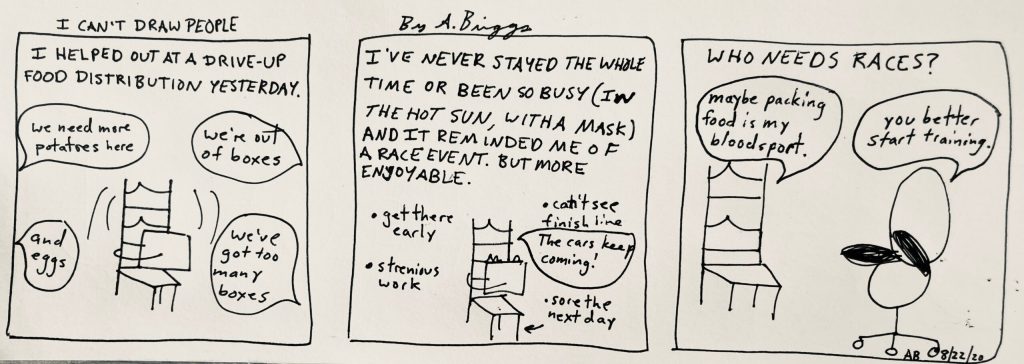 I CAN'T DRAW PEOPLE
By A. Briggs
I HELPED OUT AT A DRIVE-UP
FOOD DISTRIBUTION YESTERDAY.
we need more
potatoes here
we're out
of boxes
and
eggs
we've
got too
many
boxes
I'VE NEVER STAYED THE WHOLE
TIME OR BEEN SO BUSY (IN
THE HOT SUN, WITH A MASK)
AND IT REMINDED ME OF
A RACE EVENT. BUT MORE
ENJOYABLE.
• get there
early
• can't see
finish line
The cars keep
coming!
• strenious
work
• sore the
next day
WHO NEEDS RACES?
maybe packing
food is my
bloodsport.
you better
start training.
AB 8/22/20